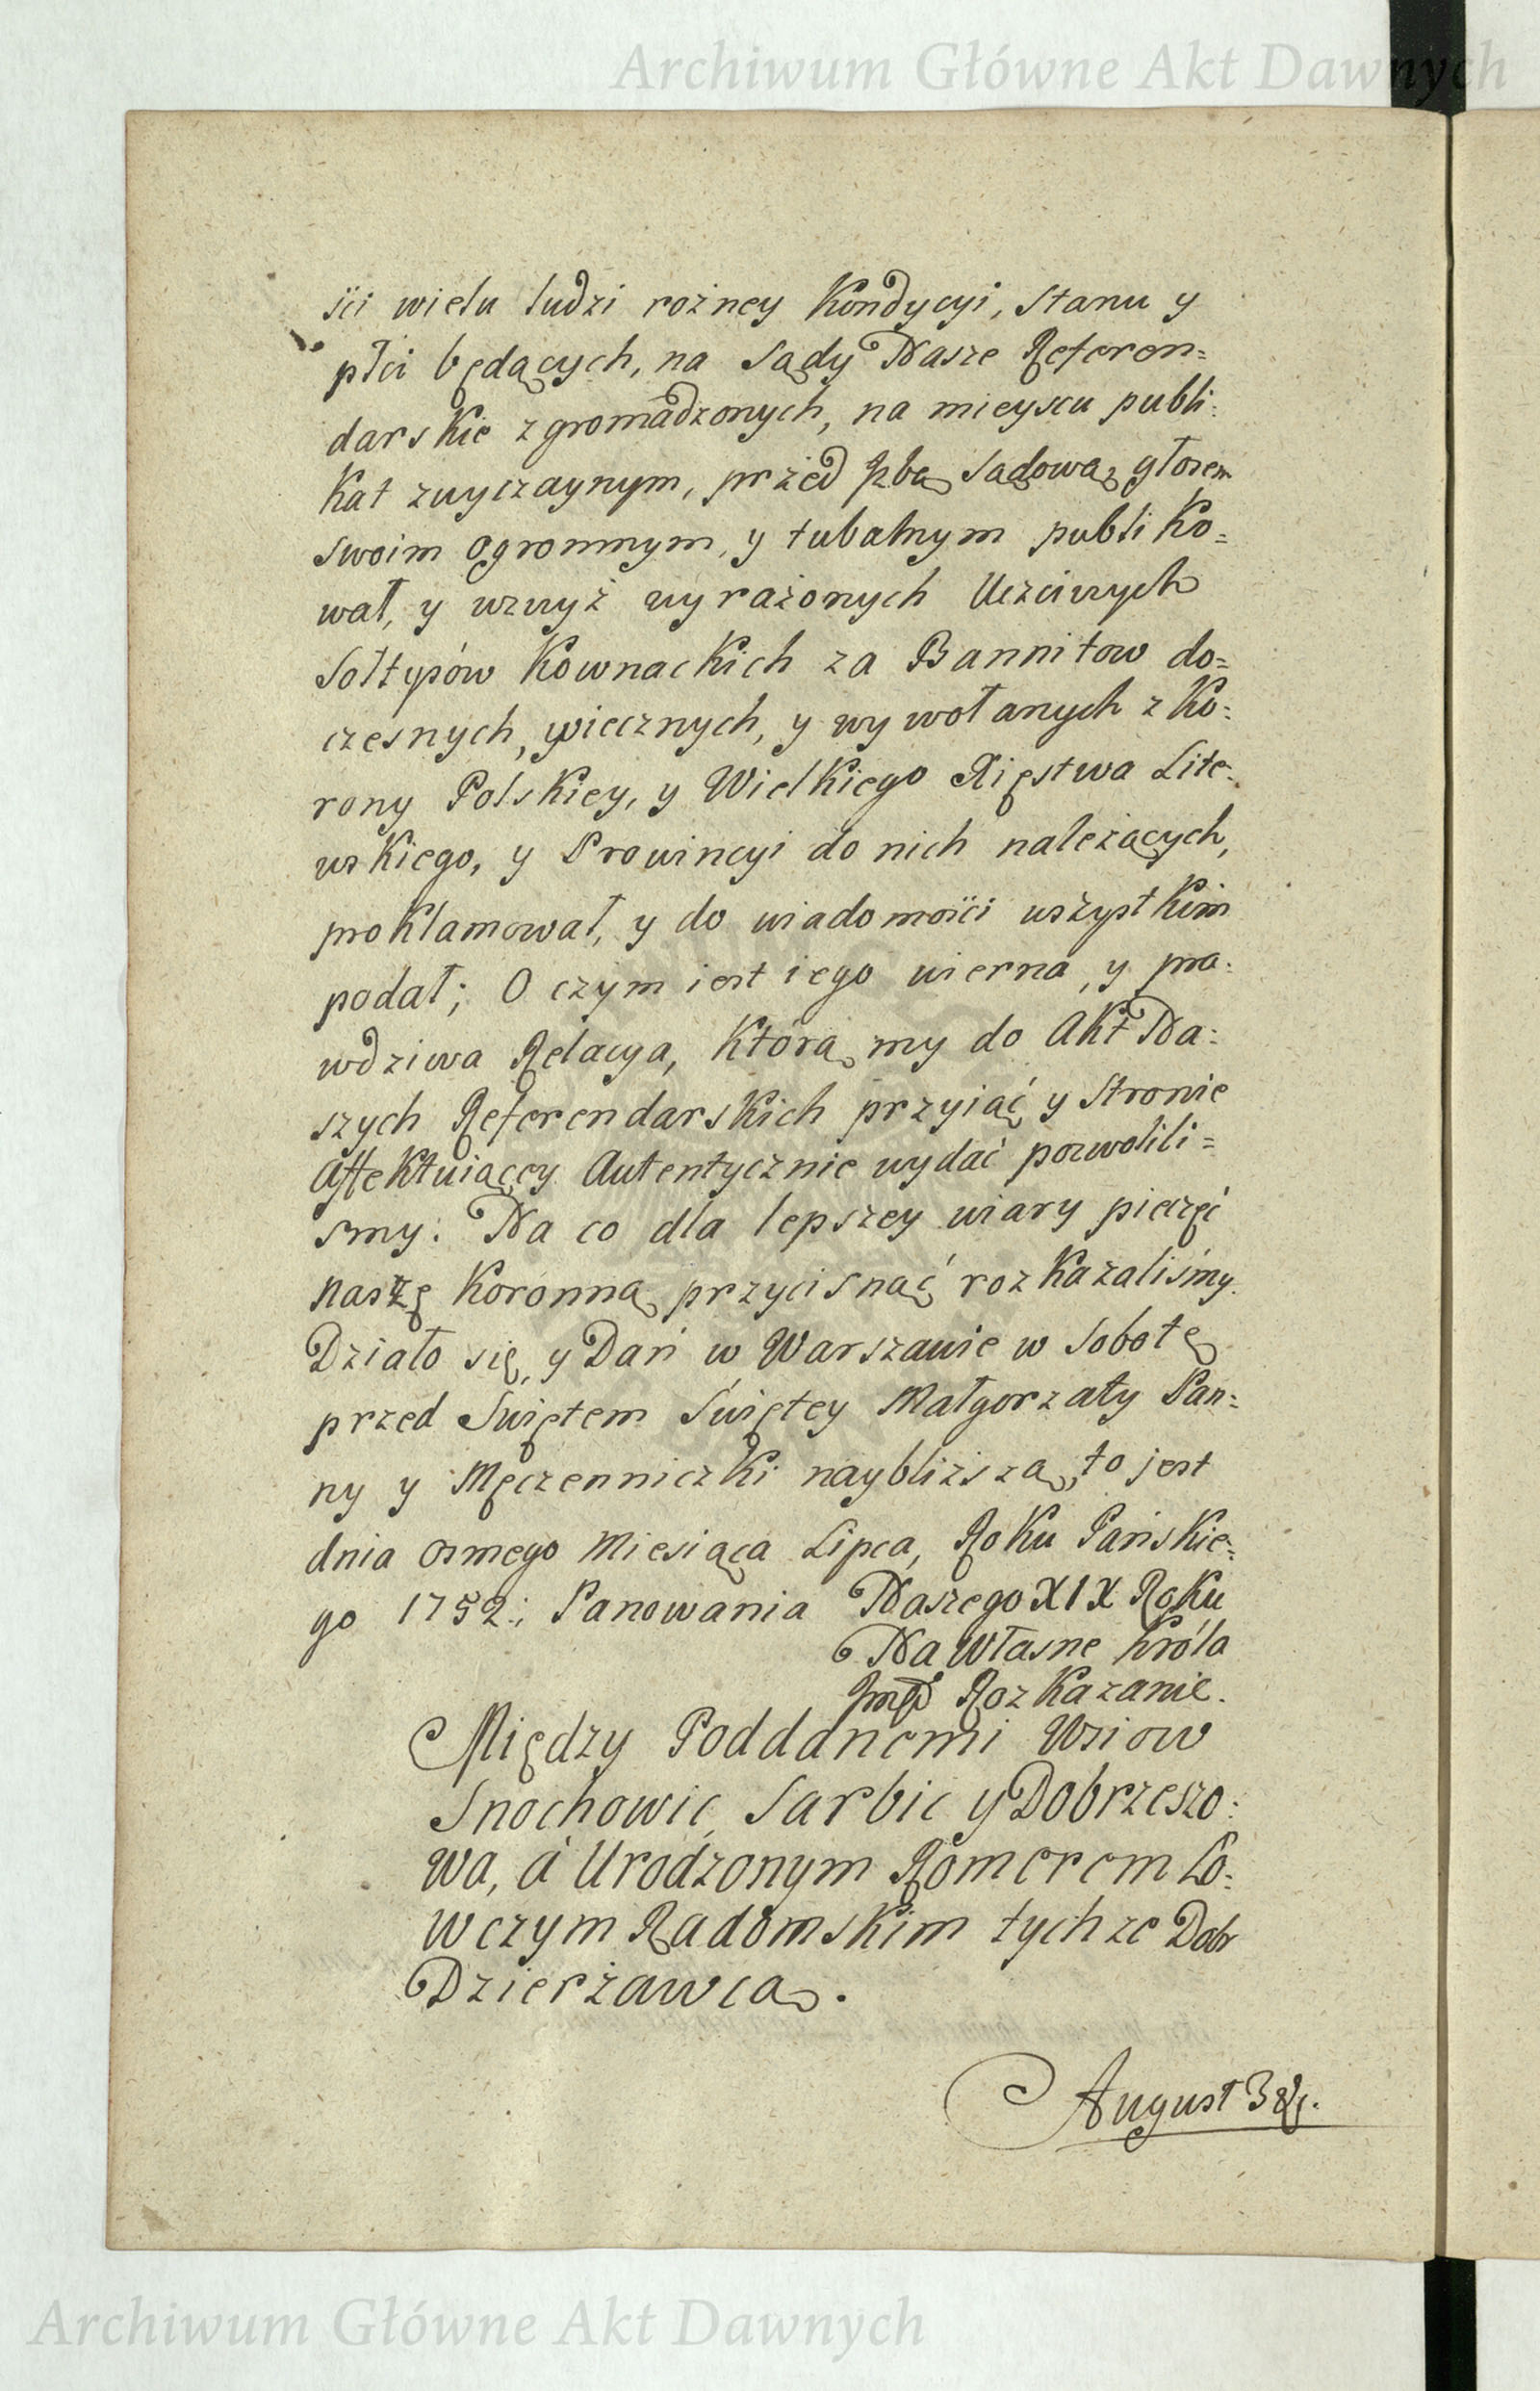 Archiwum Główne Akt Dawnych
ści wielu ludzi rożney Kondycyi, Stanu y
płci będących, na Sądy Nasze Referen=
darskie zgromadzonych, na mieyscu publi=
kat zwyczaynym, przed Izbą Sądową, głosem
swoim ogromnym, y tubalnym publiko=
wał, y wzwyż wyrażonych Uczciwych
Sołtysów Kownackich za Bannitow do=
czesnych, wiecznych, y wywołanych z Ko=
rony Polskiey, y Wielkiego Xięstwa Lite=
wskiego, y Prowincyi do nich należących,
proklamował, y do wiadomości wszystkim
podał; O czym iest iego wierna, y pra=
wdziwa Relacya, Którą my do Akt Na=
szych Referendarskich przyiąć y Stronie
Affektuiącey Autentycznie wydać pozwolili=
smy. Na co dla lepszey wiary pieczęć
naszę Koronną przycisnąć rozkazaliśmy.
Działo się, y Dań w Warszawie w Sobotę
przed Swiętem Świętey Małgorzaty Pan=
ny y Męczenniczki naybliższą, to jest
dnia osmego Miesiąca Lipca, Roku Pańskie=
go 1752: Panowania Naszego XIX Roku
Na Własne Króla
Jmci Rozkazanie.
Między Poddanemi Wsiow
Snochowic, Sarbic y Dobrzeszo=
wa, á Urodzonym Romerem Ło=
wczym Radomskim tychze Dobr
Dzierżawcą.
August 3 Rg.
Archiwum Główne Akt Dawnych